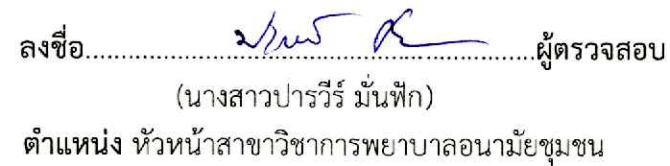 ลงชื่อ................................................ผู้ตรวจสอบ
(นางสาวปารวีร์ มั่นฟัก)
ตำแหน่ง หัวหน้าสาขาวิชาการพยาบาลอนามัยชุมชน